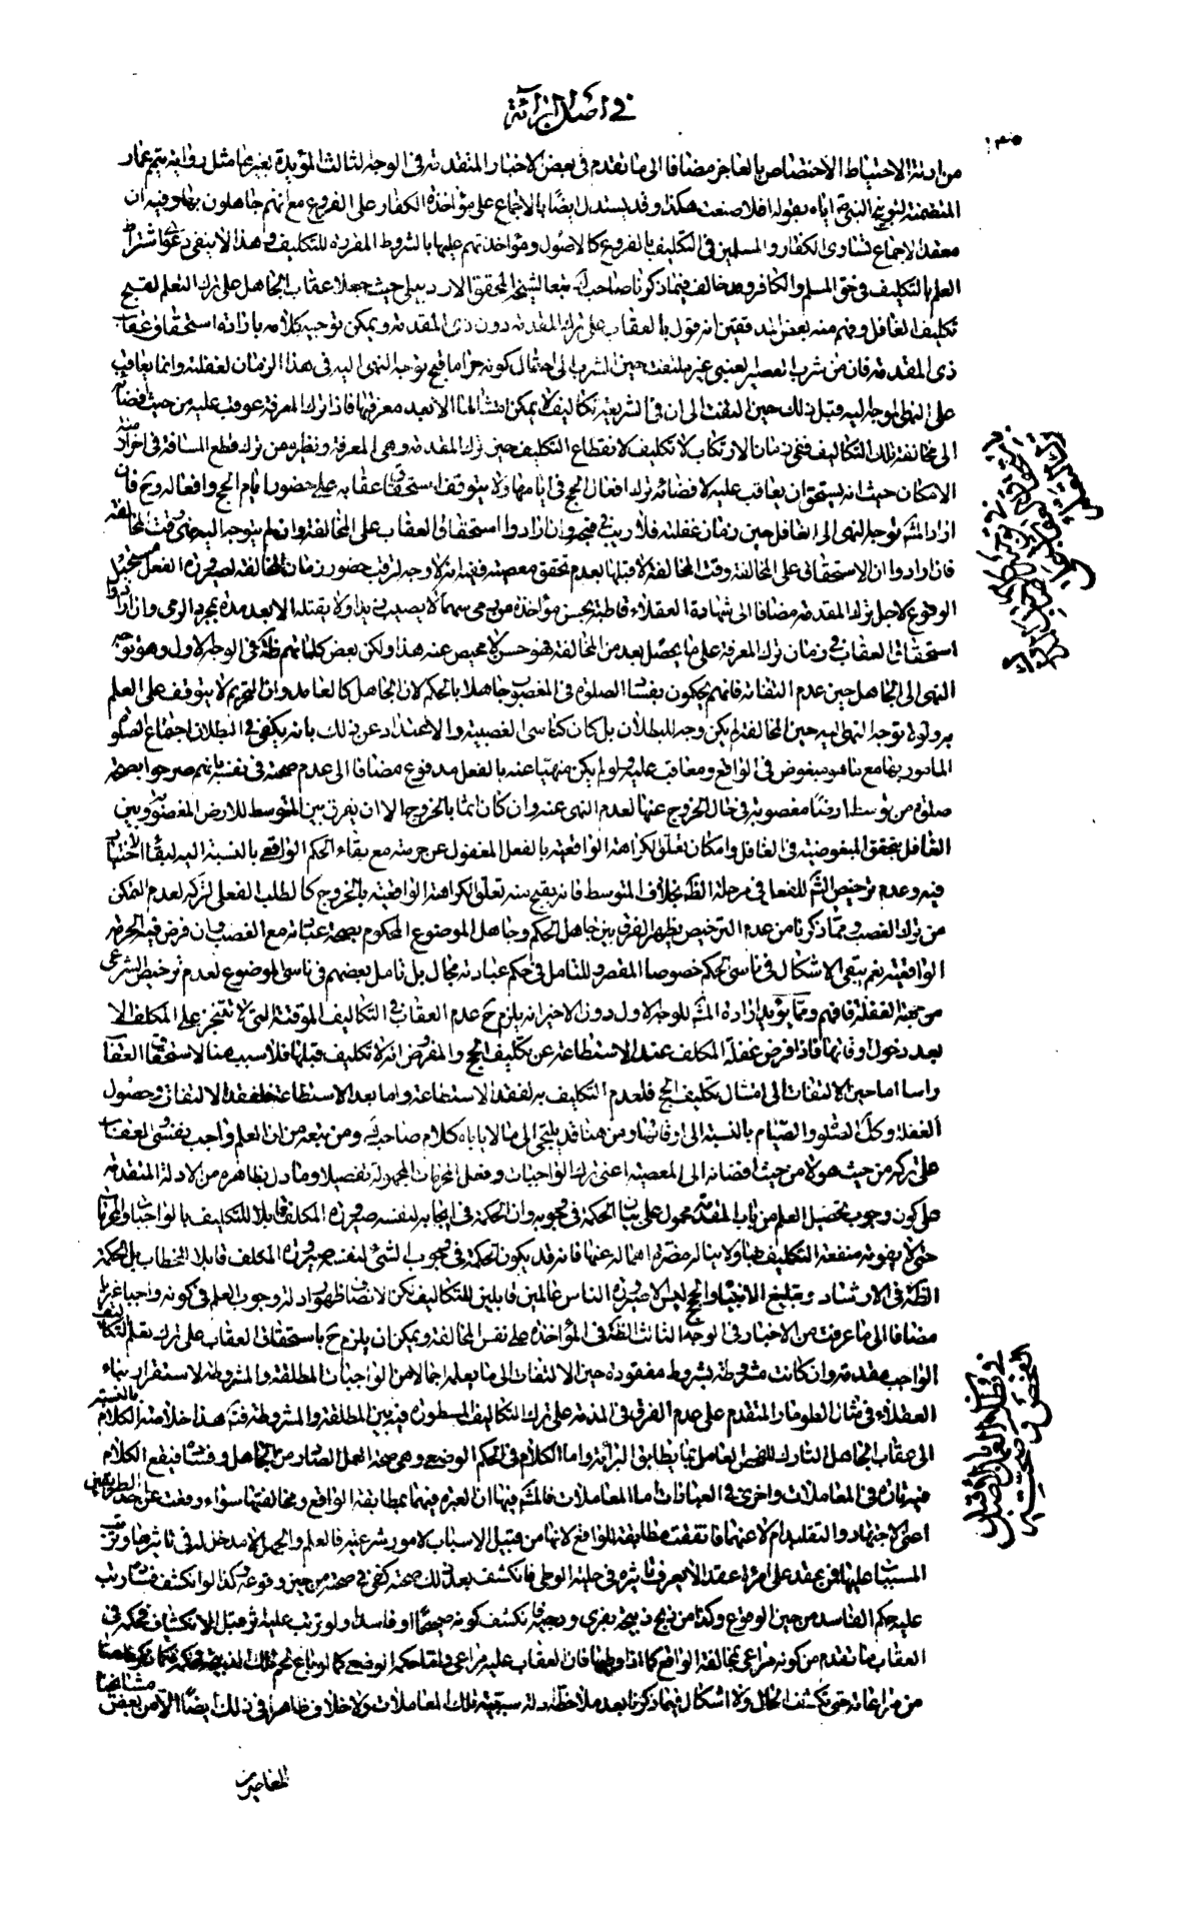 في اصل البرائة
من ادلة الاحتياط الاختصاص بالعاجز مضافا الى ما تقدم في بعض الاخبار المتقدمة في الوجه الثالث المؤيدة بغيرها مثل رواية تيمم عمار
المتضمنة لتوبيخ النبي ص اياه بقوله افلا صنعت هكذا وقد يستدل ايضًا بالاجماع على مؤاخذة الكفار على الفروع مع انهم جاهلون بها وفيه ان
معقد الاجماع تساوى الكفار والمسلمين في التكليف بالفروع كالاصول ومؤاخذتهم عليها بالشروط المقررة للتكليف وهذا لا ينفى دعوى اشتراط
العلم بالتكليف في حق المسلم والكافر وقد خالف فيما ذكرنا صاحب ك تبعا لشيخه المحقق الاردبيلي حيث جعلا عقاب الجاهل على ترك التعلم لقبح
تكليف الغافل وفهم منه بعض المدققين انه قول بالعقاب على ترك المقدمة دون ذى المقدمة ويمكن توجيه كلامه بارادة استحقاق عقاب
ذى المقدمة فان من شرب العصير العنبى غير ملتفت حين الشرب الى احتمال كونه حراما قبح توجه النهى اليه في هذا الزمان لغفلته وانما يعاقب
على النهى الموجه اليه قبل ذلك حين التفت الى ان في الشريعة تكاليف لا يمكن امتثالها الا بعد معرفتها فاذا ترك المعرفة عوقب عليه من حيث افضائه
الى مخالفة تلك التكاليف ففى زمان الارتكاب لا تكليف لانقطاع التكليف حين ترك المقدمة وهى المعرفة ونظيره من ترك قطع المسافة في اخر ازمنة
الامكان حيث انه يستحق ان يعاقب عليه لافضائه ترك افعال الحج في ايامها ولا يتوقف استحقاق عقابه على حضور ايام الحج وافعاله وح فان
اراد المش توجه النهى الى الغافل حين زمان غفلته فلا ريب في قبحه وان ارادوا استحقاق العقاب على المخالفة وان لم يتوجه اليه نهى وقت المخالفة
فان ارادوا ان الاستحقاق على المخالفة وقت المخالفة لا قبلها لعدم تحقق معصية ففيه انه لا وجه لترقب حضور زمان المخالفة لصيرورة الفعل مستحيل
الوقوع لاجل ترك المقدمة مضافا الى شهادة العقلاء قاطبة بحسن مؤاخذة من رمى سهما لا يصيب زيدا ولا يقتله الا بعد مدة بمجرد الرمى وان ارادوا
استحقاق العقاب في زمان ترك المعرفة على ما يحصل بعد من المخالفة فهو حسن لا محيص عنه هذا ولكن بعض كلماتهم ظ في الوجه الاول وهو توجه
النهى الى الجاهل حين عدم التفاته فانهم يحكمون بفساد الصلوة في المغصوب جاهلا بالحكم لان الجاهل كالعامد وان التحريم لا يتوقف على العلم
به ولولا توجه النهى اليه حين المخالفة لم يكن وجه للبطلان بل كان كناسى الغصبية والاعتذار عن ذلك بانه يكفى في البطلان اجتماع الصلوة
المأمور بها مع ما هو مبغوض في الواقع ومعاقب عليه ولو لم يكن منهيا عنه بالفعل مدفوع مضافا الى عدم صحته في نفسه بانهم صرحوا بصحة
صلوة من توسط ارضًا مغصوبة في حال الخروج عنها لعدم النهى عنه وان كان اثما بالخروج الا ان يفرق بين المتوسط للارض المغصوبة وبين
الغافل بتحقق المبغوضية في الغافل وامكان تعلق الكراهة الواقعية بالفعل المغفول عن حرمته مع بقاء الحكم الواقعى بالنسبة اليه لبقاء الاختيار
فيه وعدم ترخيص الش للفعل في مرحلة الظ بخلاف المتوسط فانه يقبح منه تعلق الكراهة الواقعية بالخروج كالطلب الفعلى لتركه لعدم التمكن
من ترك الغصب ومما ذكرنا من عدم الترخيص يظهر الفرق بين جاهل الحكم وجاهل الموضوع المحكوم بصحة عبادته مع الغصب وان فرض فيه الحرمة
الواقعية نعم يبقى الاشكال في ناسى الحكم خصوصا المقصر وللتامل في حكم عبادته مجال بل تامل بعضهم في ناسى الموضوع لعدم ترخيص الشرعى
من جهة الغفلة فافهم ومما يؤيد ارادة المش للوجه الاول دون الاخير انه يلزم ح عدم العقاب في التكاليف الموقتة التى لا تتنجز على المكلف الا
بعد دخول اوقاتها فاذا فرض غفلة المكلف عند الاستطاعة عن تكليف الحج والمفروض انه لا تكليف قبلها فلا سبب هنا لاستحقاق العقاب
راسا اما حين الالتفات الى امتثال تكليف الحج فلعدم التكليف به لفقد الاستطاعة واما بعد الاستطاعة فلفقد الالتفات وحصول
الغفلة وكذا الصلوة والصيام بالنسبة الى اوقاتها ومن هنا قد يلتجئ الى ما لا ياباه كلام صاحب ك ومن تبعه من ان العلم واجب نفسى والعقاب
على تركه من حيث هو لا من حيث افضائه الى المعصية اعنى ترك الواجبات وفعل المحرمات المجهولة تفصيلا وما دل بظاهره من الادلة المتقدمة
على كون وجوب تحصيل العلم من باب المقدمة محمول على بيان الحكمة في وجوبه وان الحكمة في ايجابه لنفسه صيرورة المكلف قابلا للتكليف بالواجبات والمحرمات
حتى لا يفوته منفعة التكليف بها ولا يناله مضرة اهماله عنها فانه قد يكون الحكمة في وجوب الشئ لنفسه صيرورة المكلف قابلا للخطاب بل الحكمة
الظ في الارشاد وتبليغ الانبياء والحجج ليس الا صيرورة الناس عالمين قابلين للتكاليف لكن الانصاف ظهور ادلة وجوب العلم في كونه واجبا غيريا
مضافا الى ما عرفت من الاخبار في الوجه الثالث الظ في المؤاخذة على نفس المخالفة ويمكن ان يلتزم ح باستحقاق العقاب على ترك تعلم التكاليف
الواجب مقدمة وان كانت مشروطة بشروط مفقودة حين الالتفات الى ما يعلمه اجمالا من الواجبات المطلقة والمشروطة لاستقرار بناء
العقلاء في مثال الطومار المتقدم على عدم الفرق في المذمة على ترك التكاليف المسطورة فيه بين المطلقة والمشروطة فتأمل هذا خلاصة الكلام بالنسبة
الى عقاب الجاهل التارك للفحص العامل بما يطابق البرائة واما الكلام في الحكم الوضعى وهى صحة العمل الصادر من الجاهل وفساده فيقع الكلام
فيه تارة في المعاملات واخرى في العبادات اما المعاملات فالمش فيها ان العبرة فيهما بمطابقة الواقع ومخالفتها سواء وقعت عن احد الطريقين
اعنى الاجتهاد والتقليد ام لا عنهما فاتفقت مطابقة الواقع لانها من قبيل الاسباب لامور شرعية فالعلم والجهل لا مدخل له في تاثيرها وترتب
المسببات عليها فمن عقد على امراة عقدا لا يعرف تاثيره في حلية الوطى فانكشف بعد ذلك صحته كفى في صحته من حين وقوعه وكذا لو انكشف فساده رتب
عليه حكم الفاسد من حين الوقوع وكذا من ذبح ذبيحة بفرى ودجيه فانكشف كونه صحيحًا او فاسدا ولو رتب عليه اثر قبل الانكشاف فحكمه في
العقاب ما تقدم من كونه مراعى بمخالفة الواقع كما اذا وطئها فان العقاب عليه مراعى واما حكمه الوضعى كما لو باع لحم تلك الذبيحة فحكمه كما ذكرنا هنا
من مراعاته حتى ينكشف الحال ولا اشكال فيما ذكرنا بعد ملاحظة ادلة سببية تلك المعاملات ولا خلاف ظاهرا في ذلك ايضًا الا من بعض مشايخنا
المعاصرين